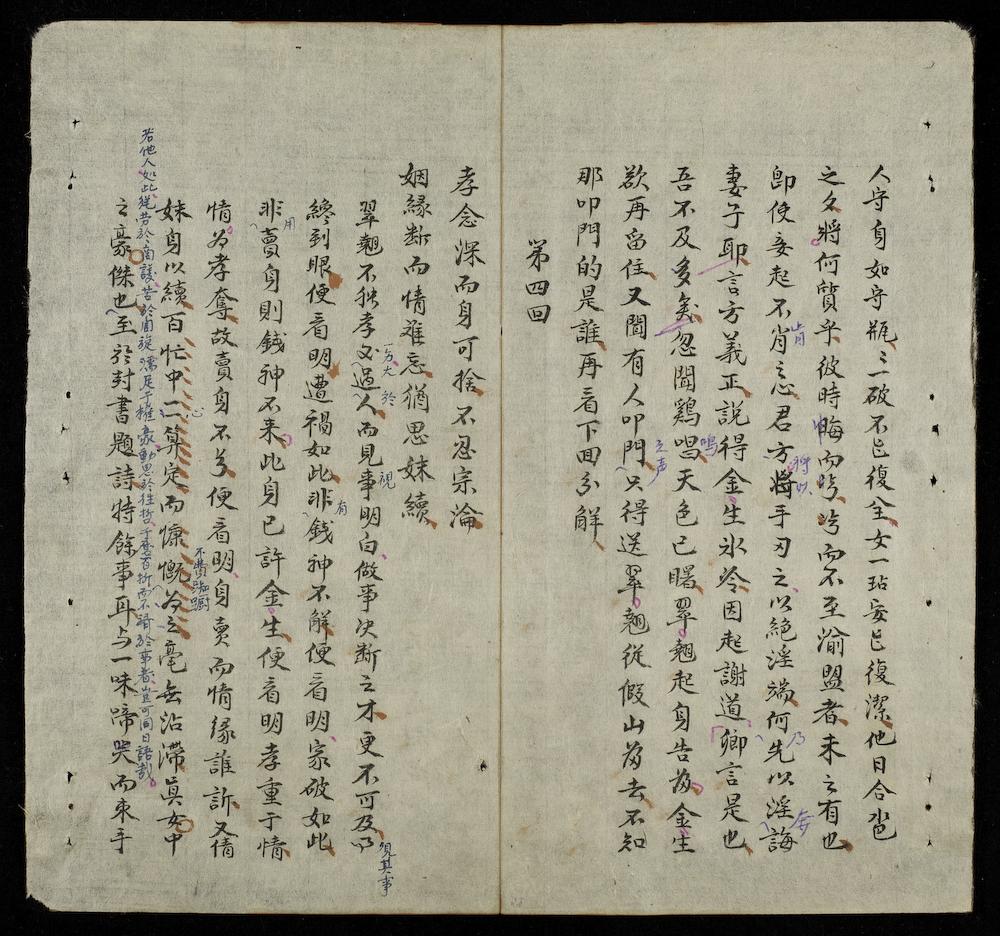 人守身如守瓶〻一破不皀復全女一玷安皀復潔他日合卺
之夕將何質乎彼時晦而吟吟而不至渝盟者未之有也
即使妾起不肖之心君方將手刃之以絕淫端何先以淫誨
妻子耶言方義正說得金生氷冷因起謝道卿言是也
吾不及多矣忽聞鷄唱天色已曙翠翹起身告辭金生
欲再留住又聞有人叩門只得送翠翹從假山爲去不知
那叩門的是誰再看下回分解
第四回
孝念深而身可捨不忍宗淪
姻緣斷而情难忘猶思妹續
翠翹不独孝又過人而見事明白做事决断之才更不可及以
纔到眼便看明遭禍如此非錢神不解便看明家破如此
非賣身則錢神不来此身已許金生便看明孝重于情
情为孝奪故賣身不兮便看明身賣而情缘誰訴又借
妹身以續百忙中一一算定而慷慨为之毫無沾滞眞女中
之豪傑也至於封書題詩特餘事耳与一味啼哭而束手
肖
將以
乃
奔
鳴
之声
一另大
於
視
須其事
有
用
心
不費踟躕
若他人如此
於事者豈可同日語哉